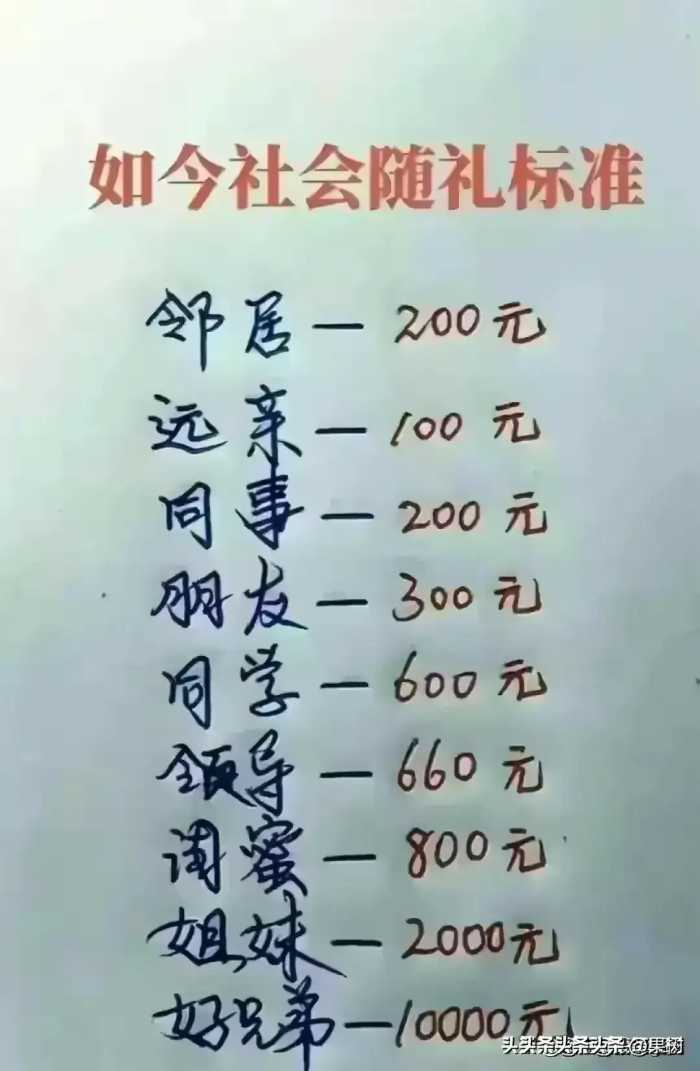 如今社会随礼标准
邻居—200元
远亲—100元
同事—200元
朋友—300元
同学—600元
领导—660元
闺蜜—800元
姐妹—2000元
好兄弟—10000元
头条@果树